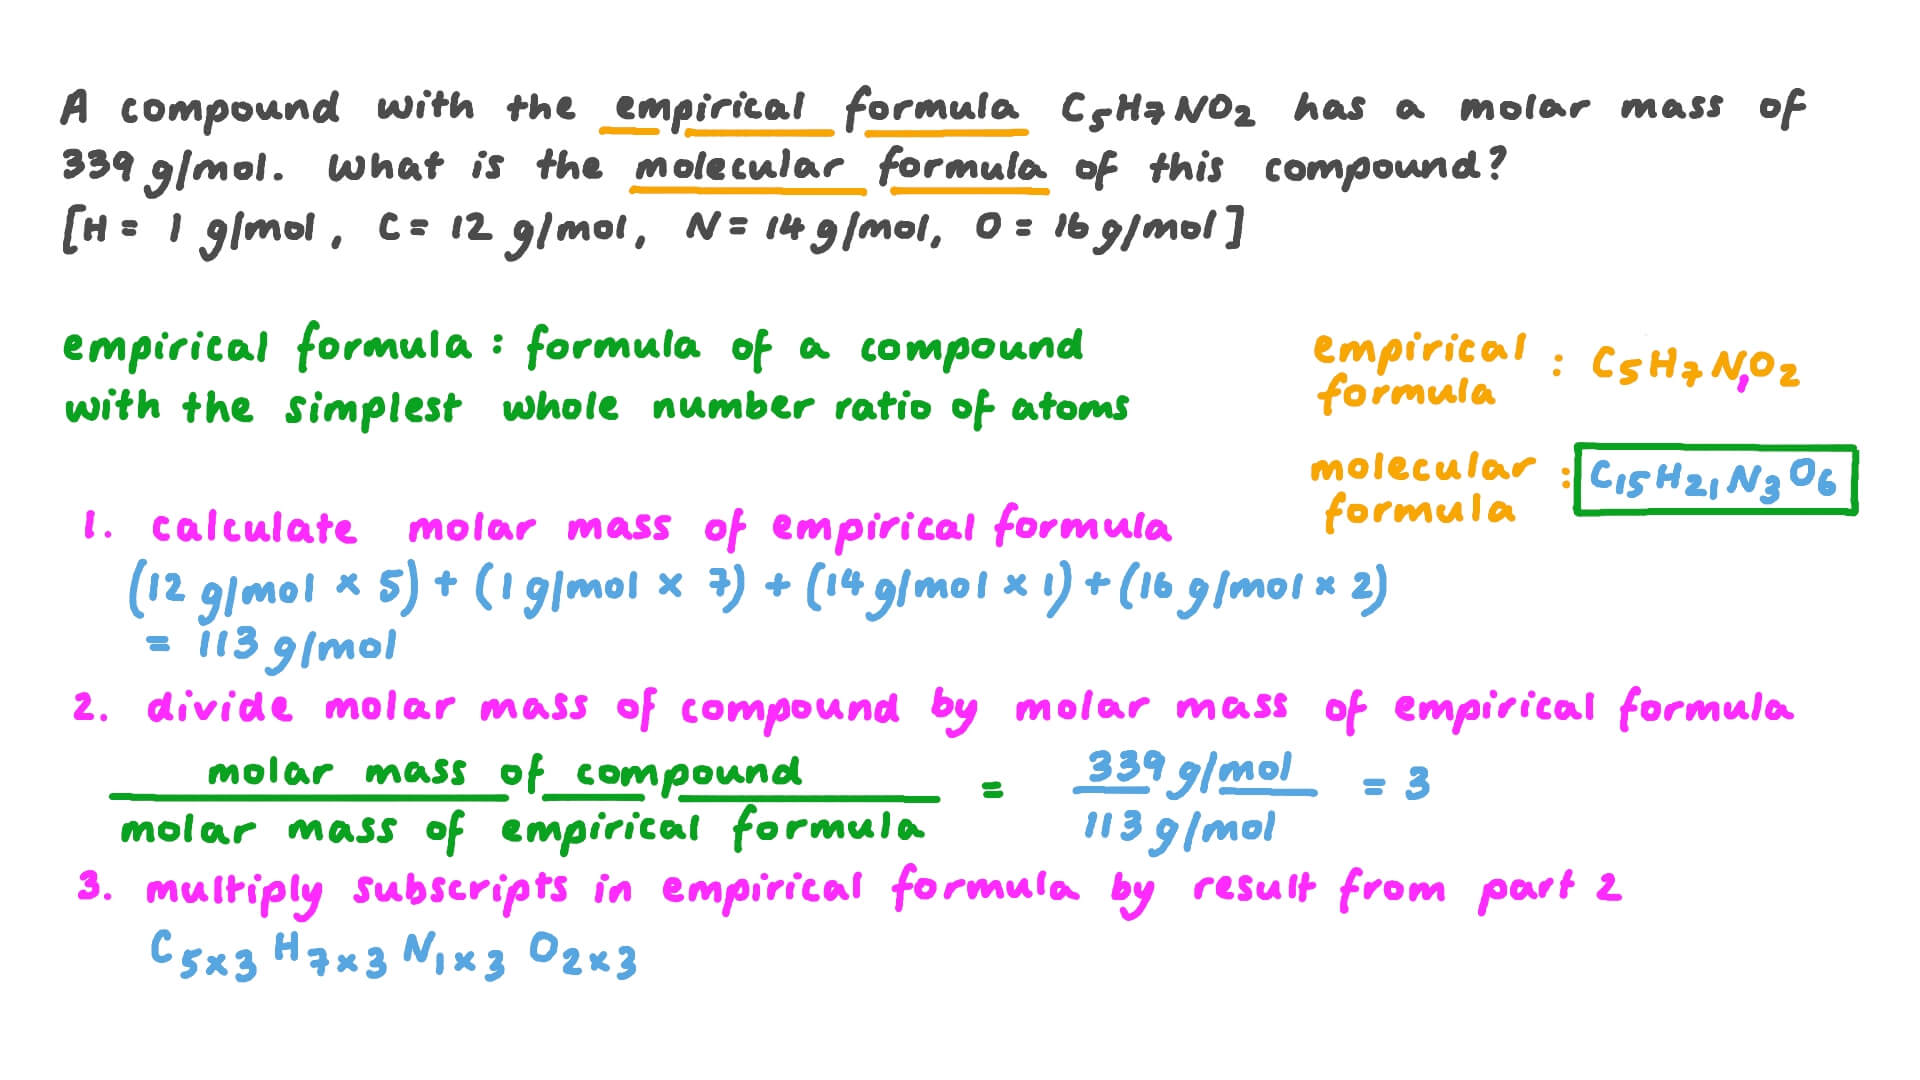 A compound with the empirical formula C₅H₇NO₂ has a molar mass of
339 g/mol. What is the molecular formula of this compound?
[H = 1 g/mol, C = 12 g/mol, N = 14 g/mol, O = 16 g/mol]
empirical formula : formula of a compound
with the simplest whole number ratio of atoms
empirical formula : C₅H₇N₁O₂
molecular formula : C₁₅H₂₁N₃O₆
1. calculate molar mass of empirical formula
(12 g/mol × 5) + (1 g/mol × 7) + (14 g/mol × 1) + (16 g/mol × 2)
= 113 g/mol
2. divide molar mass of compound by molar mass of empirical formula
molar mass of compound
molar mass of empirical formula
=
339 g/mol
113 g/mol
= 3
3. multiply subscripts in empirical formula by result from part 2
C₅ₓ₃ H₇ₓ₃ N₁ₓ₃ O₂ₓ₃